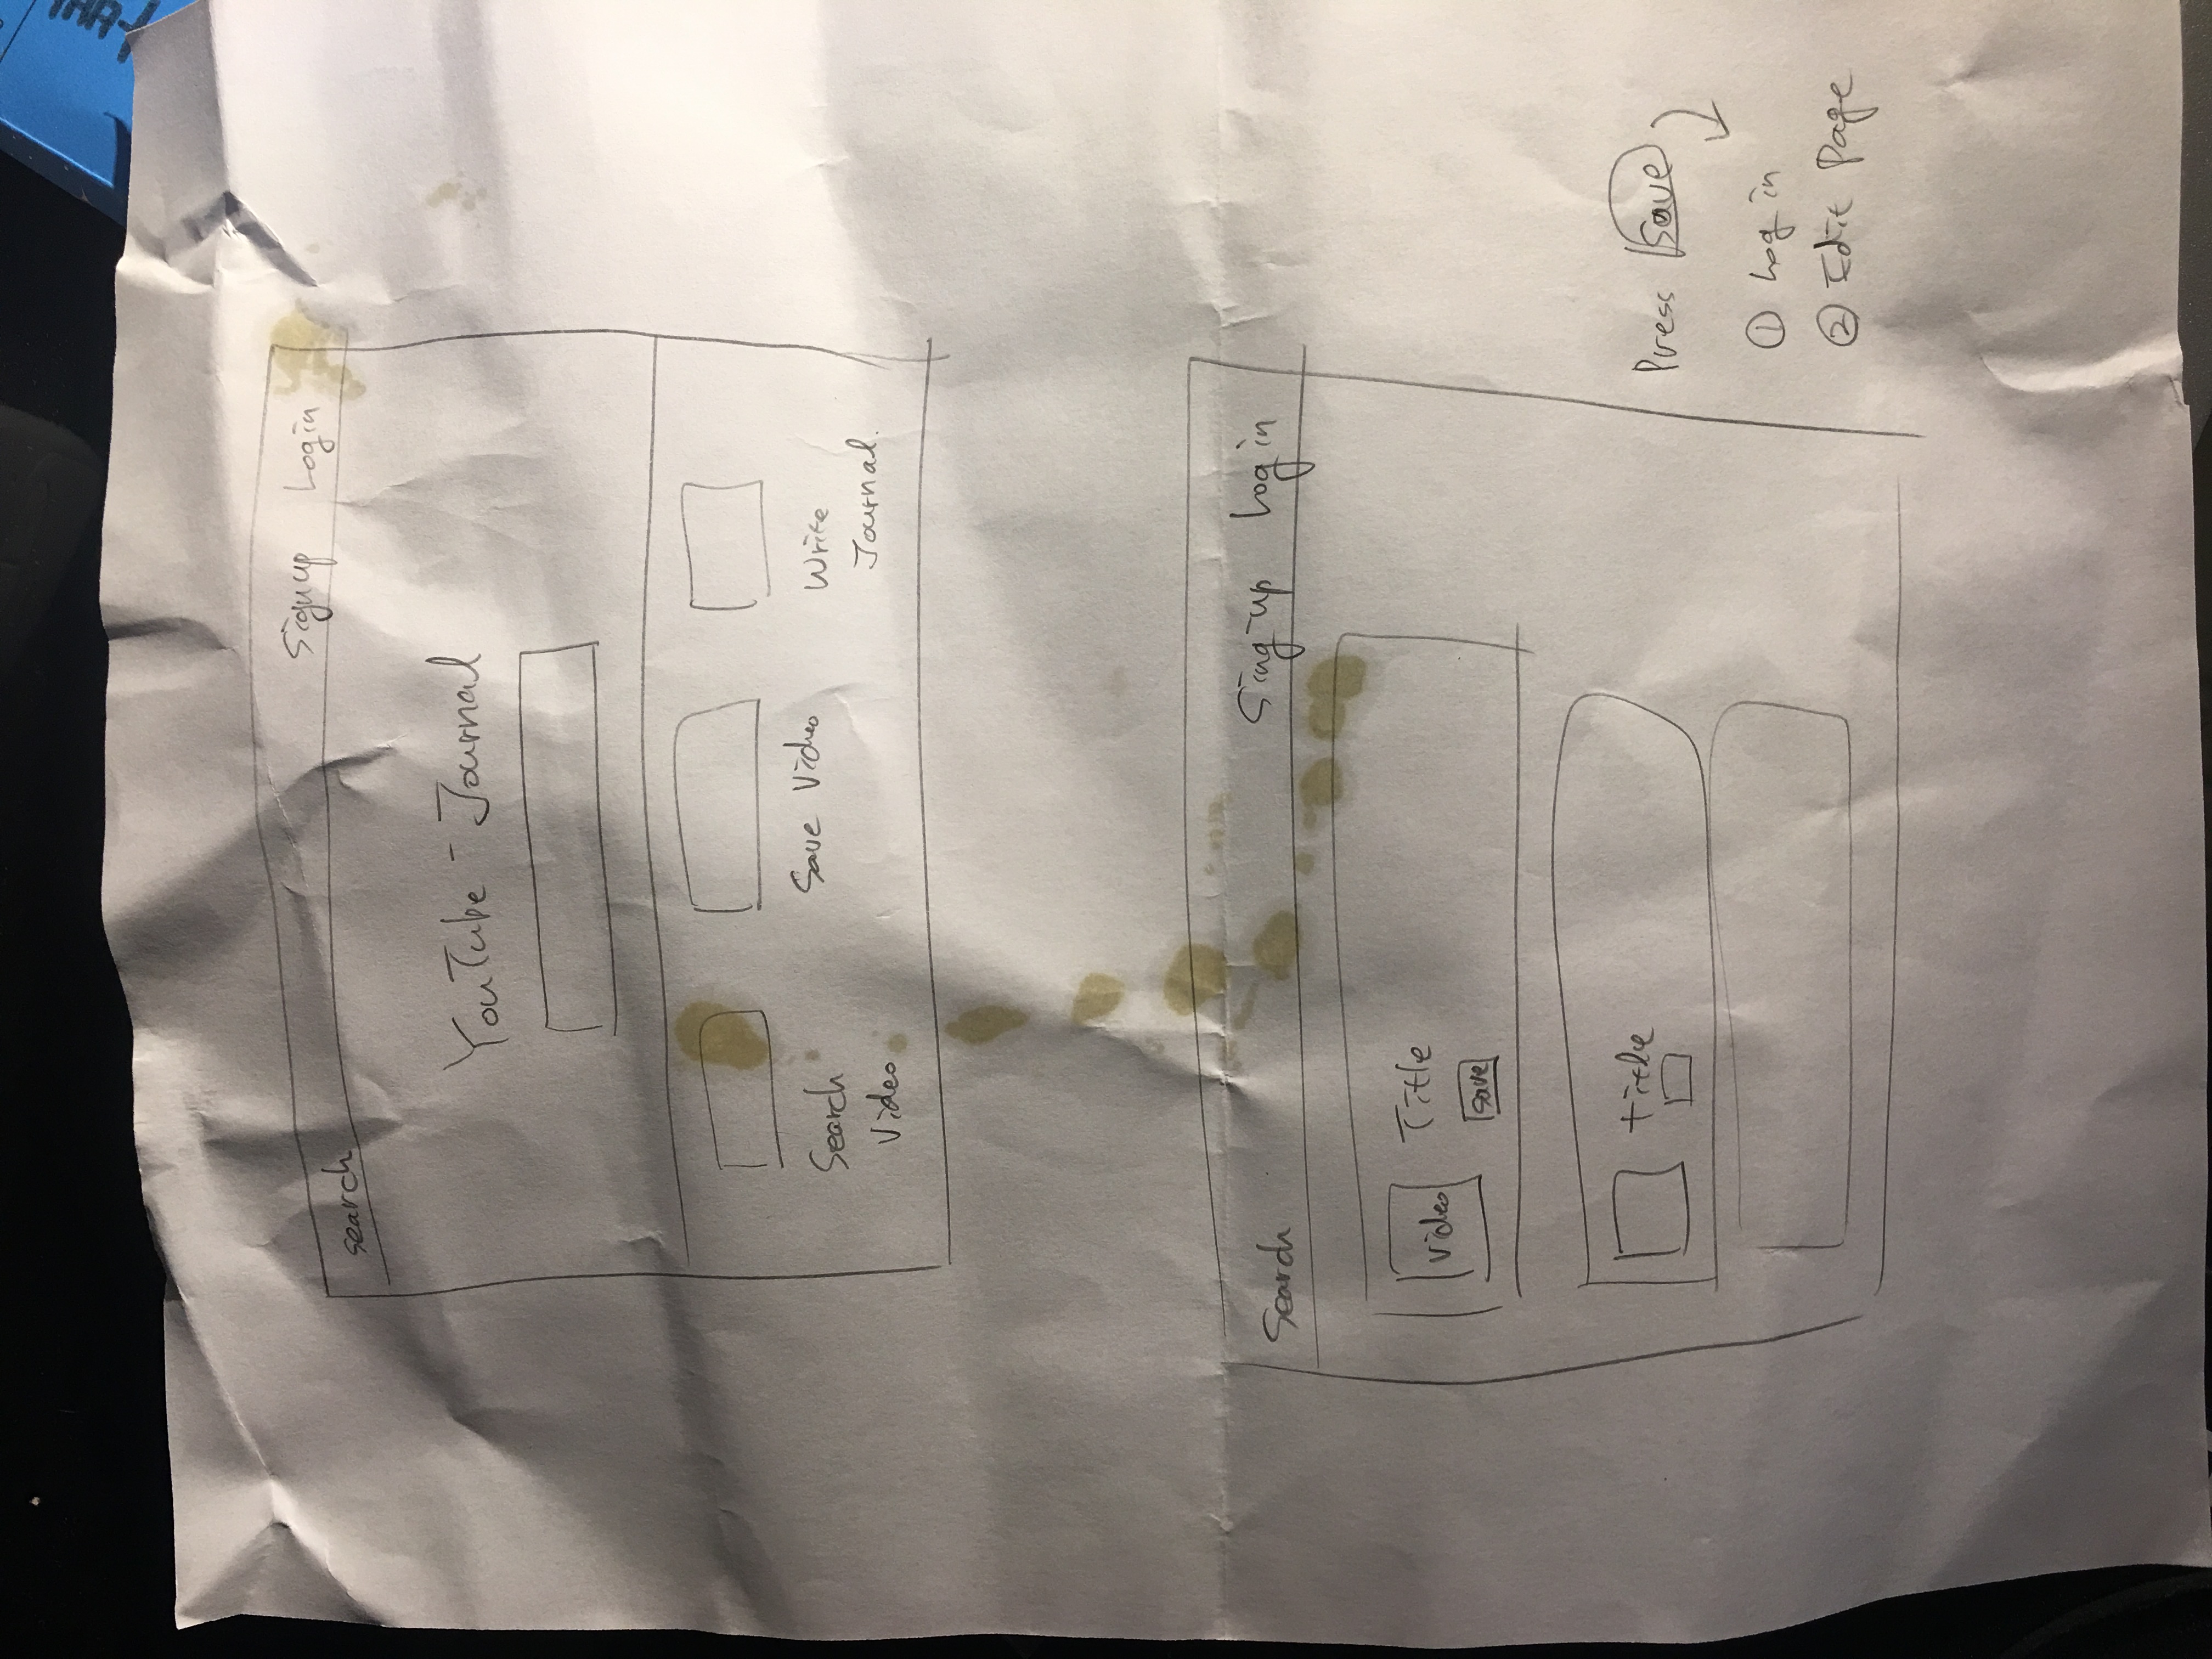 search
Signup Login
YouTube - Journal
Search
Video
Save Video
Write
Journal.
Search
Sing-up Log in
Video
Title
save
title
Press save
① Log in
② Edit Page